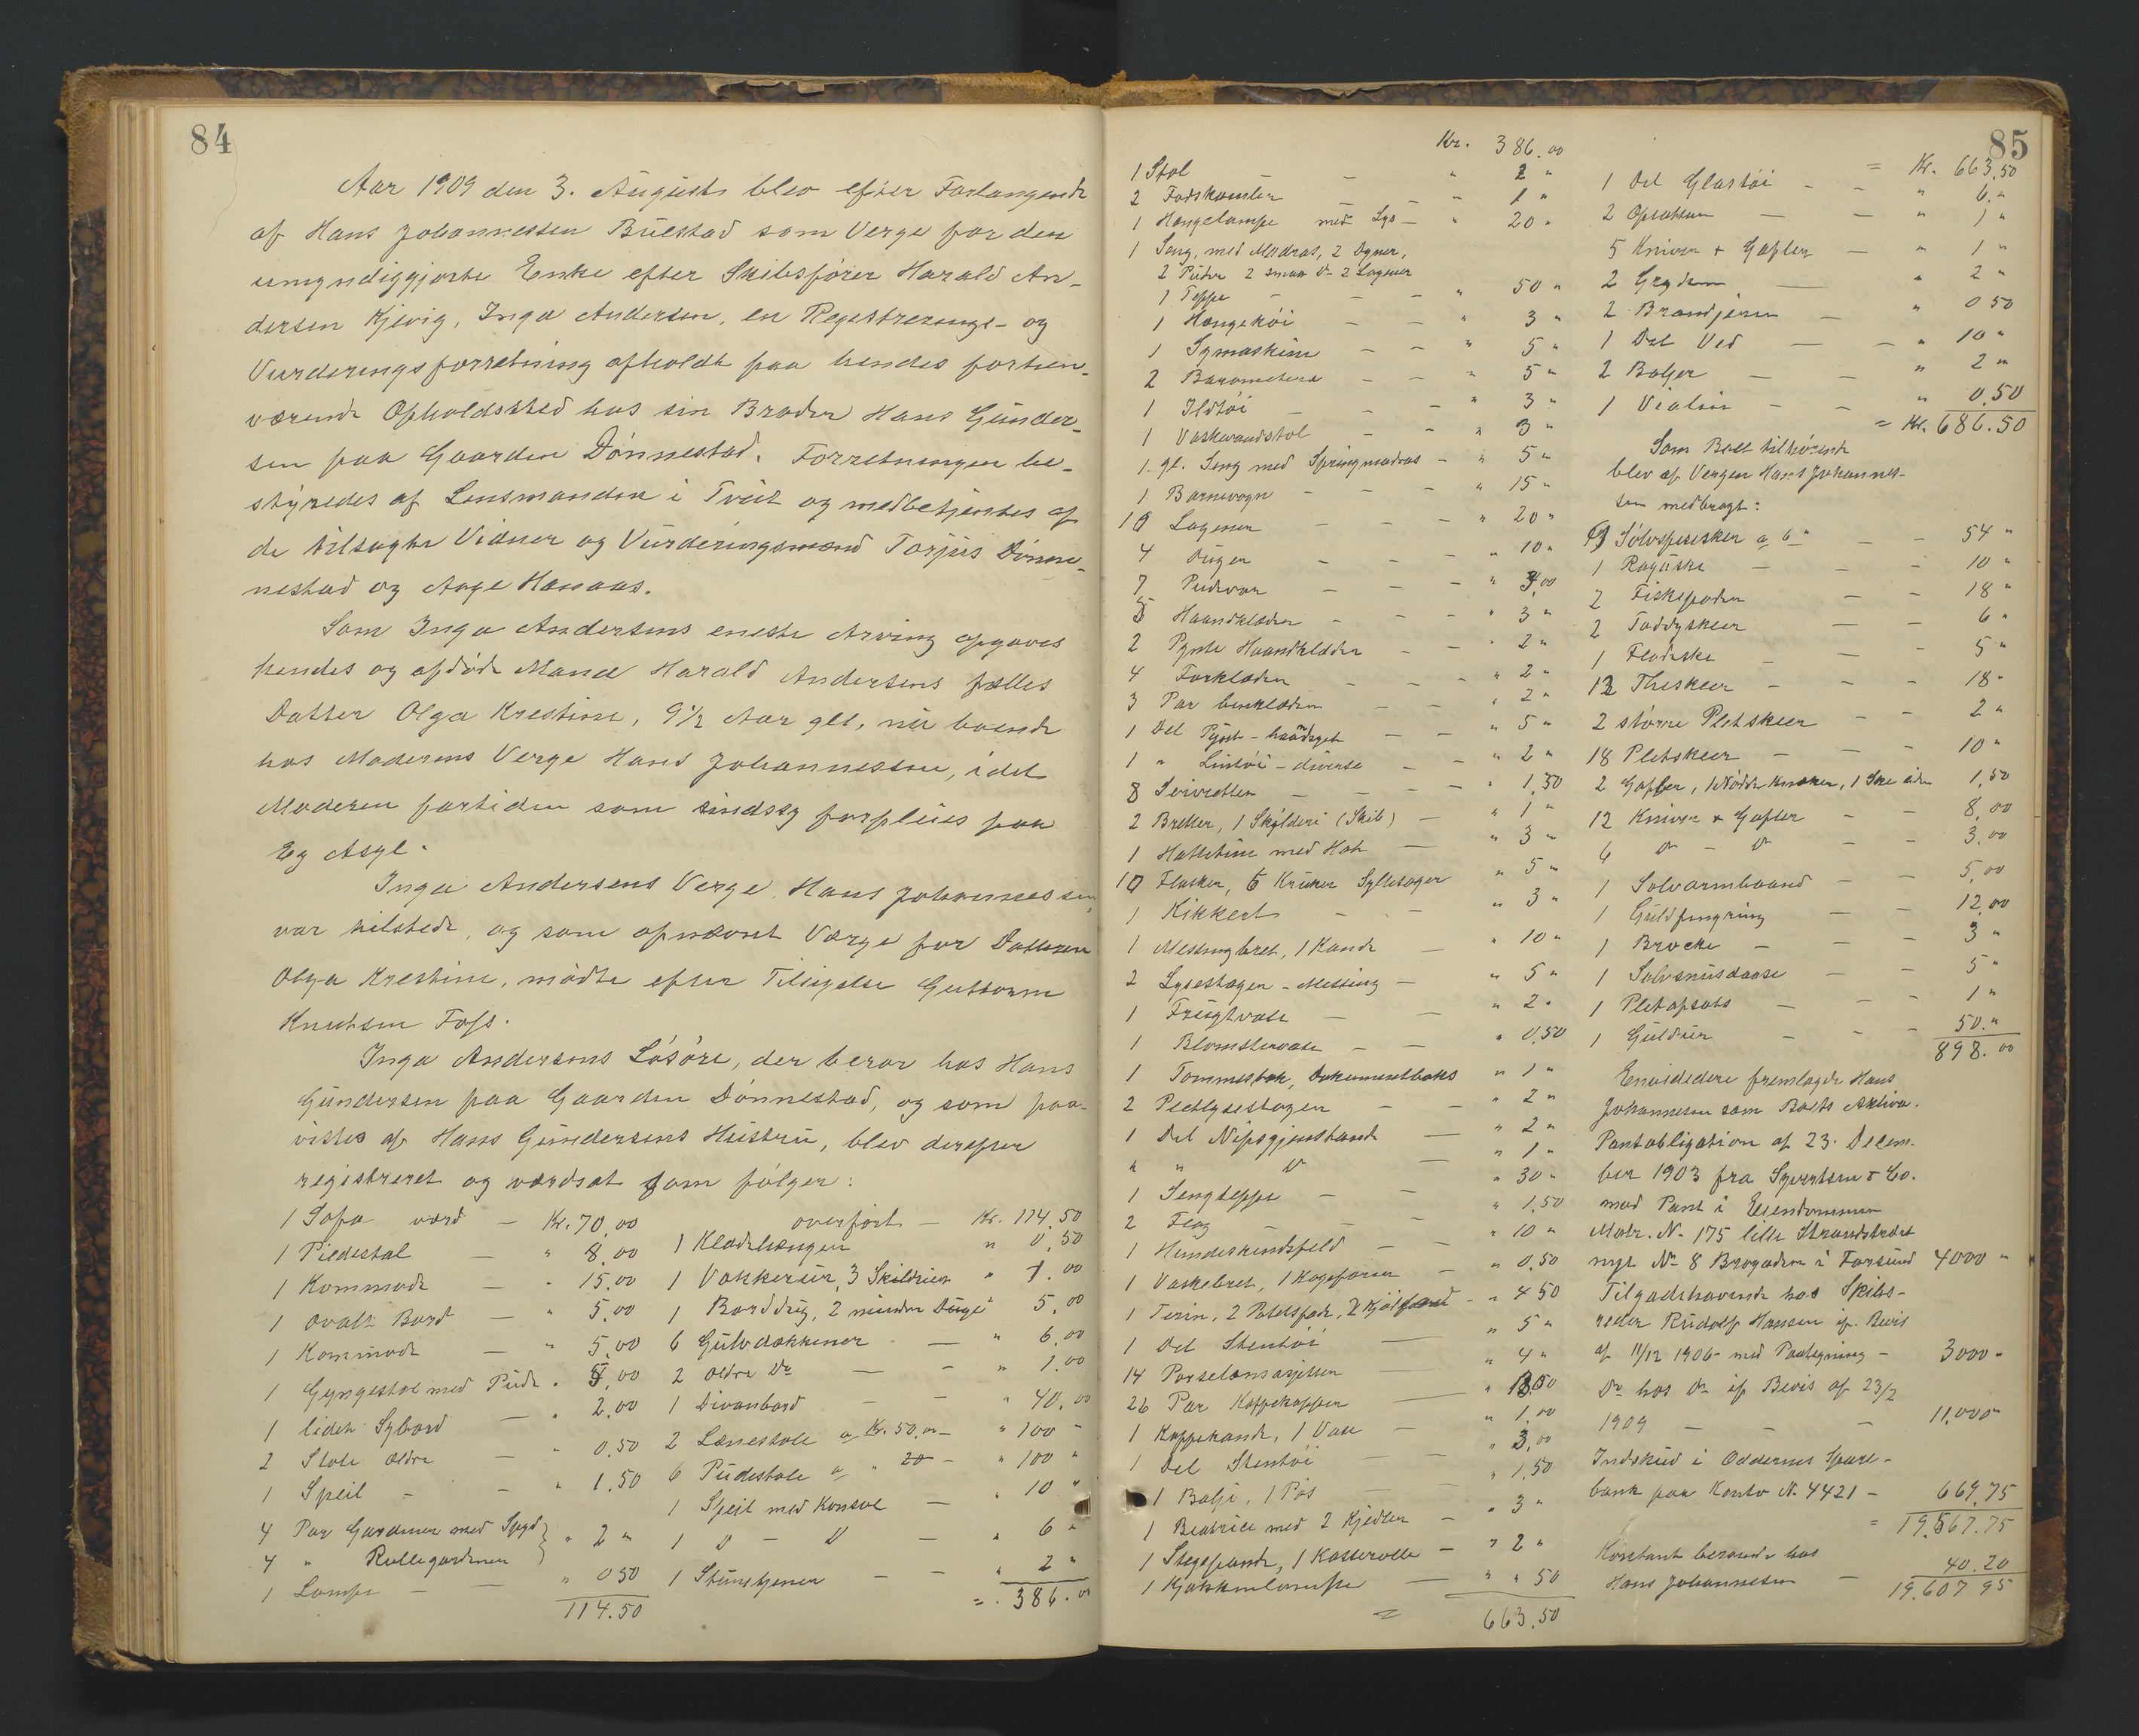 84
Aar 1909 den 3. Augusts blev efter Forlangende
af Hans Johannessen Buestad som Verge for den
umyndiggjorte Enke efter Skibsfører Harald An-
dersen Kjevig, Inga Andersen, en Registrerings- og
Vurderingsforretning afholdt paa hendes forhen-
værende Opholdssted hos sin Broder Hans Gunder-
sen paa Gaarden Dønnestad. Forretningen be-
styredes af Lensmanden i Tveit og medbetjentes af
de tilsagte Vidner og Vurderingsmænd Torjus Dønne-
nestad og Aage Hanaas.
Som Inga Andersens eneste Arving opgaves
hendes og afdøde Mand Harald Andersens fælles
Datter Olga Kristine, 9 1/2 Aar gl., nu boende
hos Moderens Verge Hans Johannessen, idet
Moderen fortiden som sindssyg forpleies paa
Eg Asyl.
Inga Andersens Verge, Hans Johannessen,
var tilstede, og som opnævnt Værge for Datteren
Olga Krestine, mødte efter Tilsigelse Guttorm
Knutsen Foss.
Inga Andersens Løsøre, der beror hos Hans
Gundersen paa Gaarden Dønnestad, og som paa-
vistes af Hans Gundersens Hustru, blev derefter
registreret og værdsat som følger:
1 Sofa værd – Kr. 70.00
1 Piedestal – " 8.00
1 Kommode – " 15.00
1 ovalt Bord – " 5.00
1 Kommode – " 5.00
1 Gyngestol med Pude " 5,00
1 liden Sybord – " 2.00
2 Stole ældre – " 0.50
1 Speil – – " 1.50
4 Par Gardiner med Spyd } " 2 "
4 " Rullegardiner
1 Lampe – – " 0 50
114.50
overført – Kr. 114.50
1 Klædehænger " 0.50
1 Vækkerur, 3 Skilderier " 1.00
1 Borddug, 2 mindre Duge " 5.00
6 Gulvdækkener – " 6.00
2 ældre Do – – " 1.00
1 Divanbord – – " 40.00
2 Lænestole a Kr. 50.00 – " 100 "
6 Pudestole a " 20 – " 100 "
1 Speil med Konsol – " 10 "
1 D – D – " 6 "
1 Stumtjener – – " 2 "
= . 386.00
85
Kr. 386.00
1 Stol – " 2 "
2 Fodskamler – – " 1 "
1 Hængelampe med Lys – " 20 "
1 Seng, med Madras, 2 Dyner,
2 Puder 2 smaa do 2 Lagener
1 Teppe – – – " 50 "
1 Hængekøi – – " 3 "
1 Symaskine – – " 5 "
2 Barometere – – " 5 "
1 Ildtøi – – – " 3 "
1 Vaskevandstol – – " 3 "
1 gl. Seng med Springmadras – " 5 "
1 Barnevogn – – – " 15 "
10 Lagener – – – " 20 "
4 Duger – – – " 10 "
7 Pudevar – – – " 3,00
8 Haandklæder – – – " 3 "
2 Pynte Haandklæder – – " 2 "
4 Forklæder – – – " 2 "
3 Par benklæder – – " 2 "
1 Del Pynt – haandsyet – – " 5 "
1 " Lintøi – diverse – – " 2 "
8 Servietter – – – " 1.50
2 Bretter, 1 Skilderi (Skib) – " 1 "
1 Hattetine med Hat – " 3 "
10 Flasker, 6 Kruker Syltetøier " 5 "
1 Kikkert – – " 3 "
1 Messingbret, 1 Kande – " 10 "
2 Lysestager – Messing – " 5 "
1 Frugtvase – – " 2 "
1 Blomstervase – – " 0,50
1 Tommestok, Dokumentboks " 1 "
2 Pletlysestager – – " 2 "
1 Del Nipsgjenstande – " 2 "
" " D – " 1 "
1 Sengteppe – – " 30 "
2 Flag – – " 1.50
1 Hundeskindsfeld – – " 10 "
1 Vaskebret, 1 Kageform – " 0,50
1 Terin, 2 Potetsfade, 2 Kjødfade – " 4 50
1 Del Stentøi – " 5 "
14 Porselænsasjetter " 4 "
26 Par Kaffekopper – "
1 Kaffekande, 1 Vase – " 1.00
1 Del Stentøi – " 3,00
1 Balje, 1 Pøs – " 1.50
1 Beatrice med 2 Kjedler – " 3 "
1 Stegepande, 1 Kasserolle – " 2 "
1 Kjøkkenlampe – " " 50
= 663.50
= Kr. 663.50
1 Del Glastøi – – " 6. "
2 Opsatser – – " 1 "
5 Kniver & Gafler – " 1 "
2 Gryder – " 2 "
2 Brandjern – " 0 50
1 Del Ved – – " 10 "
2 Baljer – – " 2 "
1 Violin – – " 0.50
= Kr. 686.50
Som Boet tilhørende
blev af Vergen Hans Johannes-
sen medbragt:
9 Sølvspiseskeer a 6 " – – 54 "
1 Raguske – – – 10 "
2 Fiskespader – – 18 "
2 Toddyskeer – – 6 "
1 Flødeske – – – 5 "
12 Theskeer – – – 18 "
2 større Pletskeer – – 2 "
18 Pletskeer – – – 10 "
2 Gafler, 1 Nøddeknækker, 1 Ske 1,50
12 Kniver & Gafler – – 8,00
6 do – do – – 3.00
1 Sølvarmbaand – – 5,00
1 Guldfingring – – 12,00
1 Broche – – – 3 "
1 Sølvsnusdaase – – 5 "
1 Pletopsats – – – 1 "
1 Guldur – – – 50. "
898.00
Envidedere fremlagde Hans
Johannessen som Boets Aktiva.
Pantobligation af 23. Decem-
ber 1903 fra Syvertsen & Co.
med Pant i Eiendommen
Matr. N. 175 lille Strandstrædet
nyt No 8 Brogaden i Farsund 4000 "
Tilgodehavende hos Skibs-
reder Rudolf Hansen if. Bevis
af 11/12 1906 med Paategning – 3000 "
Do hos do if Bevis af 23/2
1909 – – – 11,000
Indskud i Oddernes Spare-
bank paa Konto N. 4421 – 669.75
= 19.567.75
Kontant beroende hos
Hans Johannessen – 40.20
19.607 95